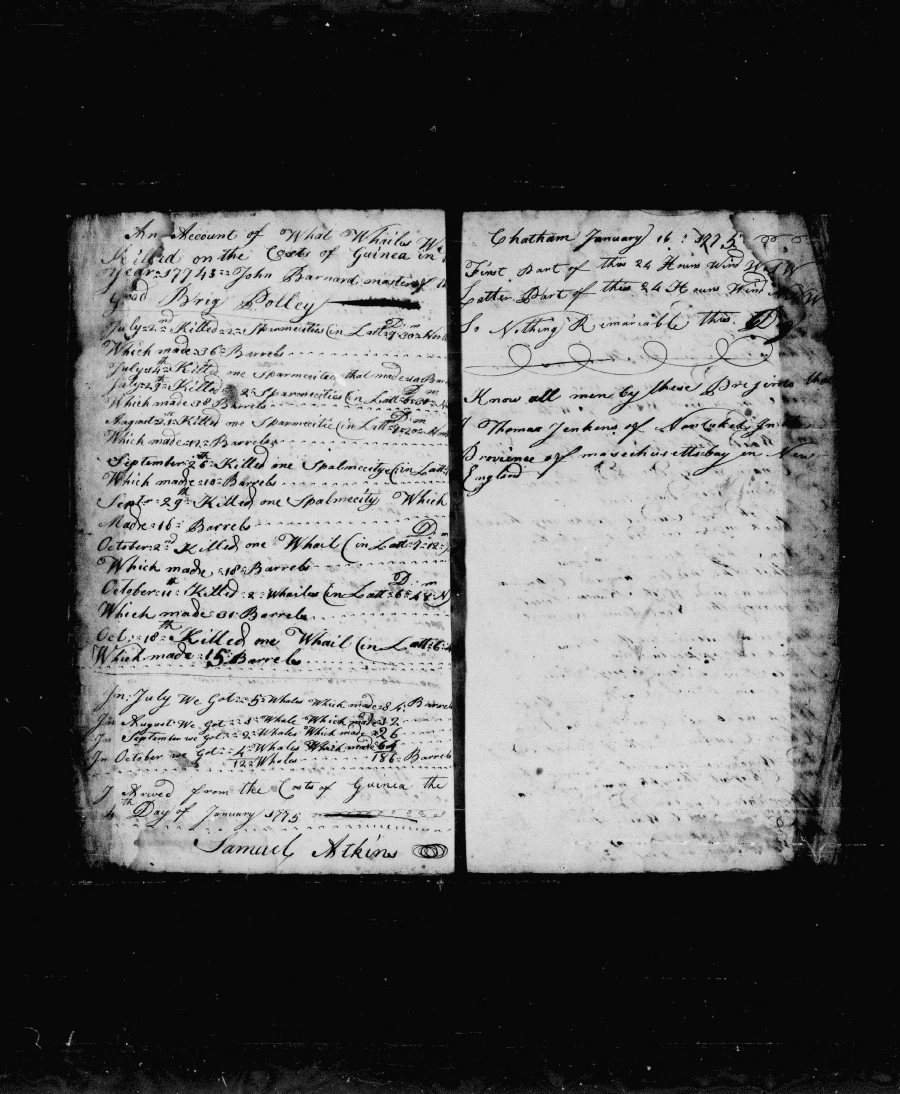 An Account of What Whailes We
Killed on the Costs of Guinea in
Year 1774 John Barnard master of
Good Brig Polley
July 2nd Killed 2 Sparmecities (in Latt 9 30 Nor
Which made 36 Barrels
July 14th Killed one Sparmecitee that made 10 Bar
July 29th Killed 2 Sparmecities (in Latt
Which made 38 Barrels
August 21st Killed one Sparmecitie (in Latt
Which made 12 Barreles
September 25th Killed one Spalmecitye (in Latt
Which made 10 Barrels
Septr 29th Killed one Spalmecity Which
Made 16 Barrels
D m
October 2nd Killed one Whail (in Latt 9 12
Which made 18 Barrels
D m
October 11th Killed 2 Whailes (in Latt 6 48 N
Which made 31 Barrels
Oct 18th Killed one Whail (in Latt 6
Which made 15 Barrels
In July We Got 5 Whales Which made 84 Barrels
In August We Got 1 Whale Which made 12
In September we Got 2 Whales Which made 26
In October we Got 4 Whales Which made 64
12 Wholes 186 Barrels
I Arived from the Costs of Guinea the
4th Day of January 1775
Samuel Atkins
Chatham January 16 : 1775
First Part of this 24 Hours Wind
Latter Part of this 24 Hours Wind
So Nothing Remariable this Day
Know all men by these Presents tha
I Thomas Jenkens of Nantuked, In the
Provience of masechusettsbay in New
England